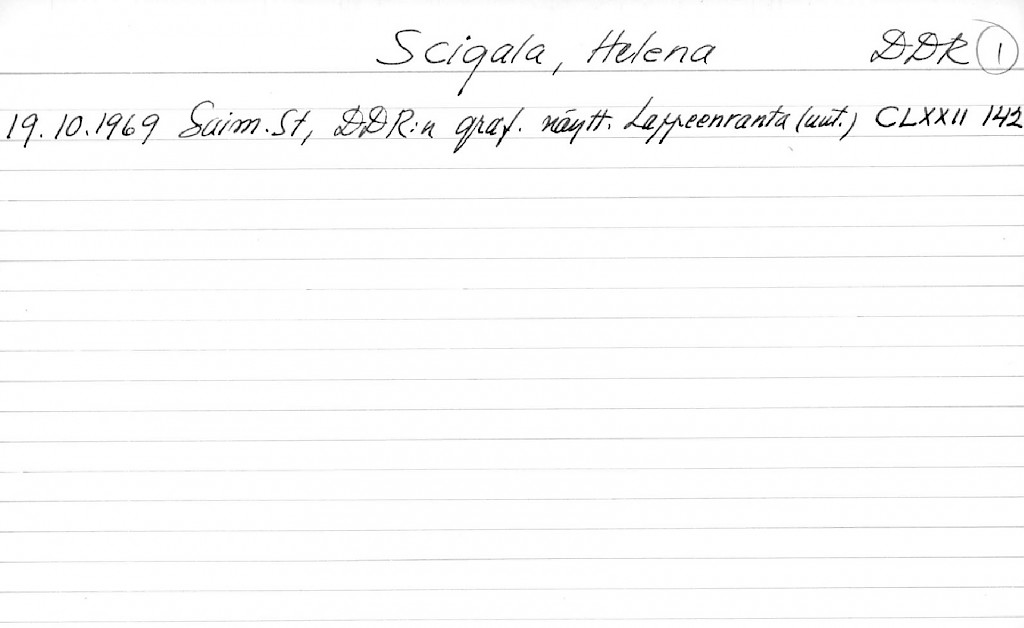 Scigala, Helena DDR 1
19.10.1969 Saim.St, DDR:n graf. näytt. Lappeenranta (uut.) CLXXII 142